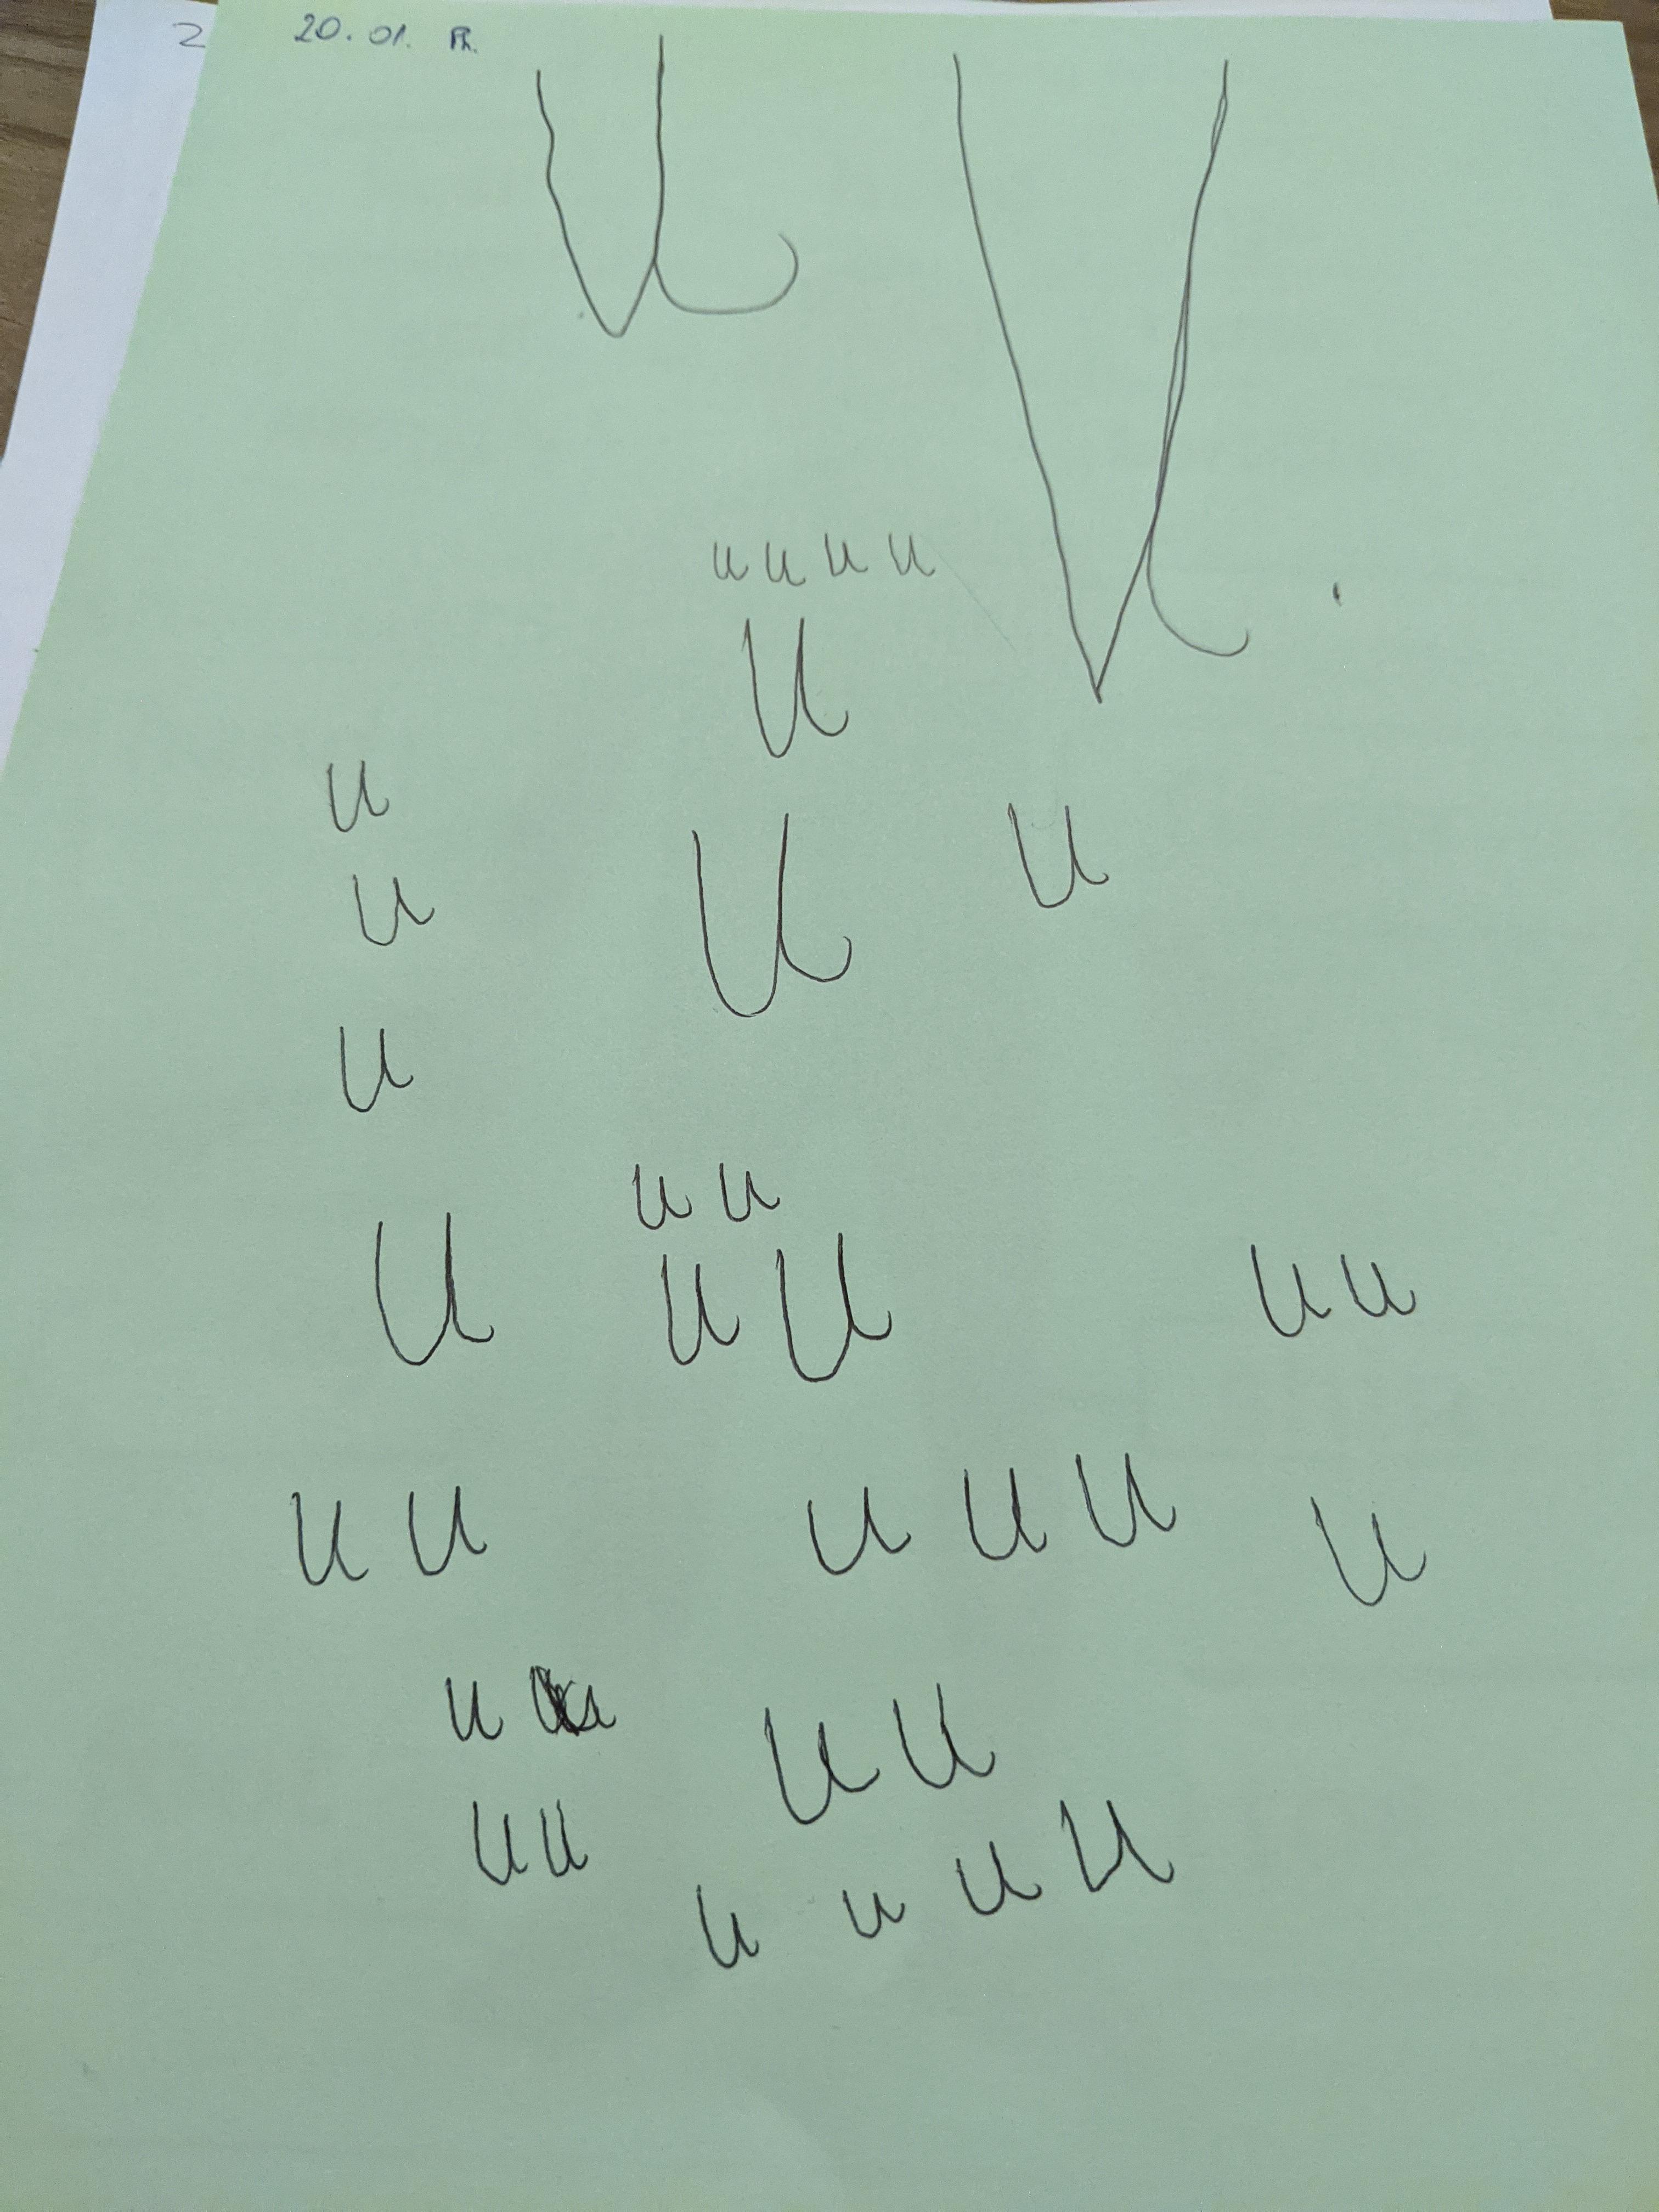 2
20. 01. Fr.
u u
u u u u
u
u
u u
u
u
u u
u u u u u
u u u u u u
u
u u u
u u u u
u u u u